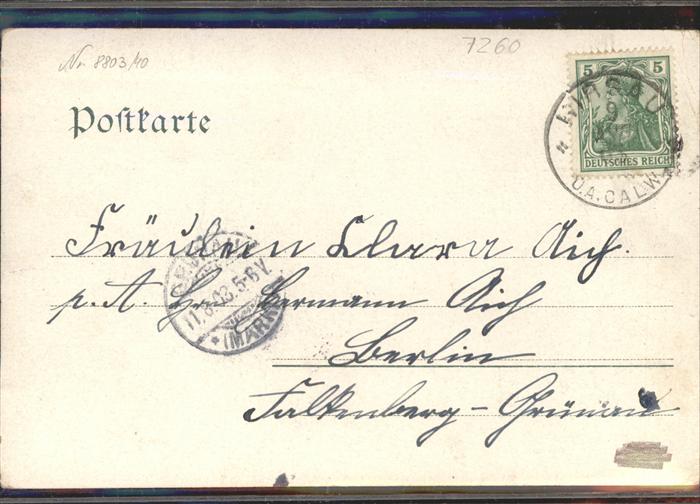 Nr 8803/40
7260
Postkarte
5 5
DEUTSCHES REICH
HIRSAU
9
O.A. CALW
Fräulein Clara Aich.
p. A. Hrn Hermann Aich
Berlin
Falkenberg-Grünau
11.8.03. 5-6V.
(MARK)